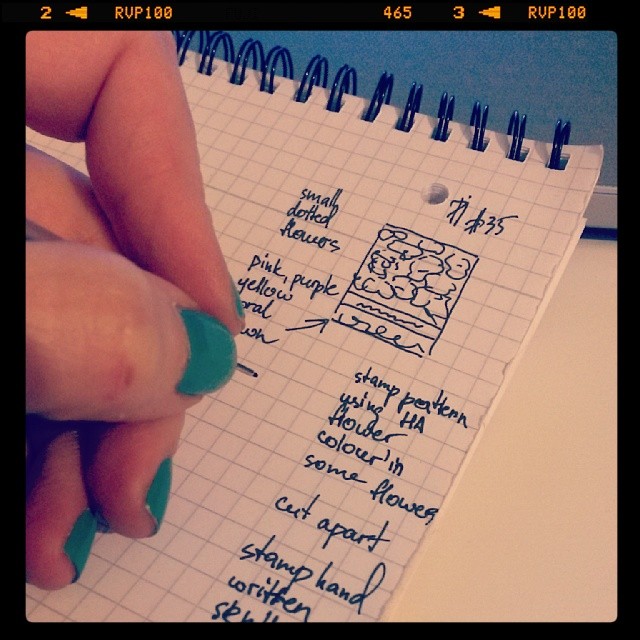 2 ◄ RVP100 465 3 ◄ RVP100
#35
small
dotted
flowers
pink, purple
yellow
stamp pattern
using HA
flower
colour in
some flowers
cut apart
stamp hand
written